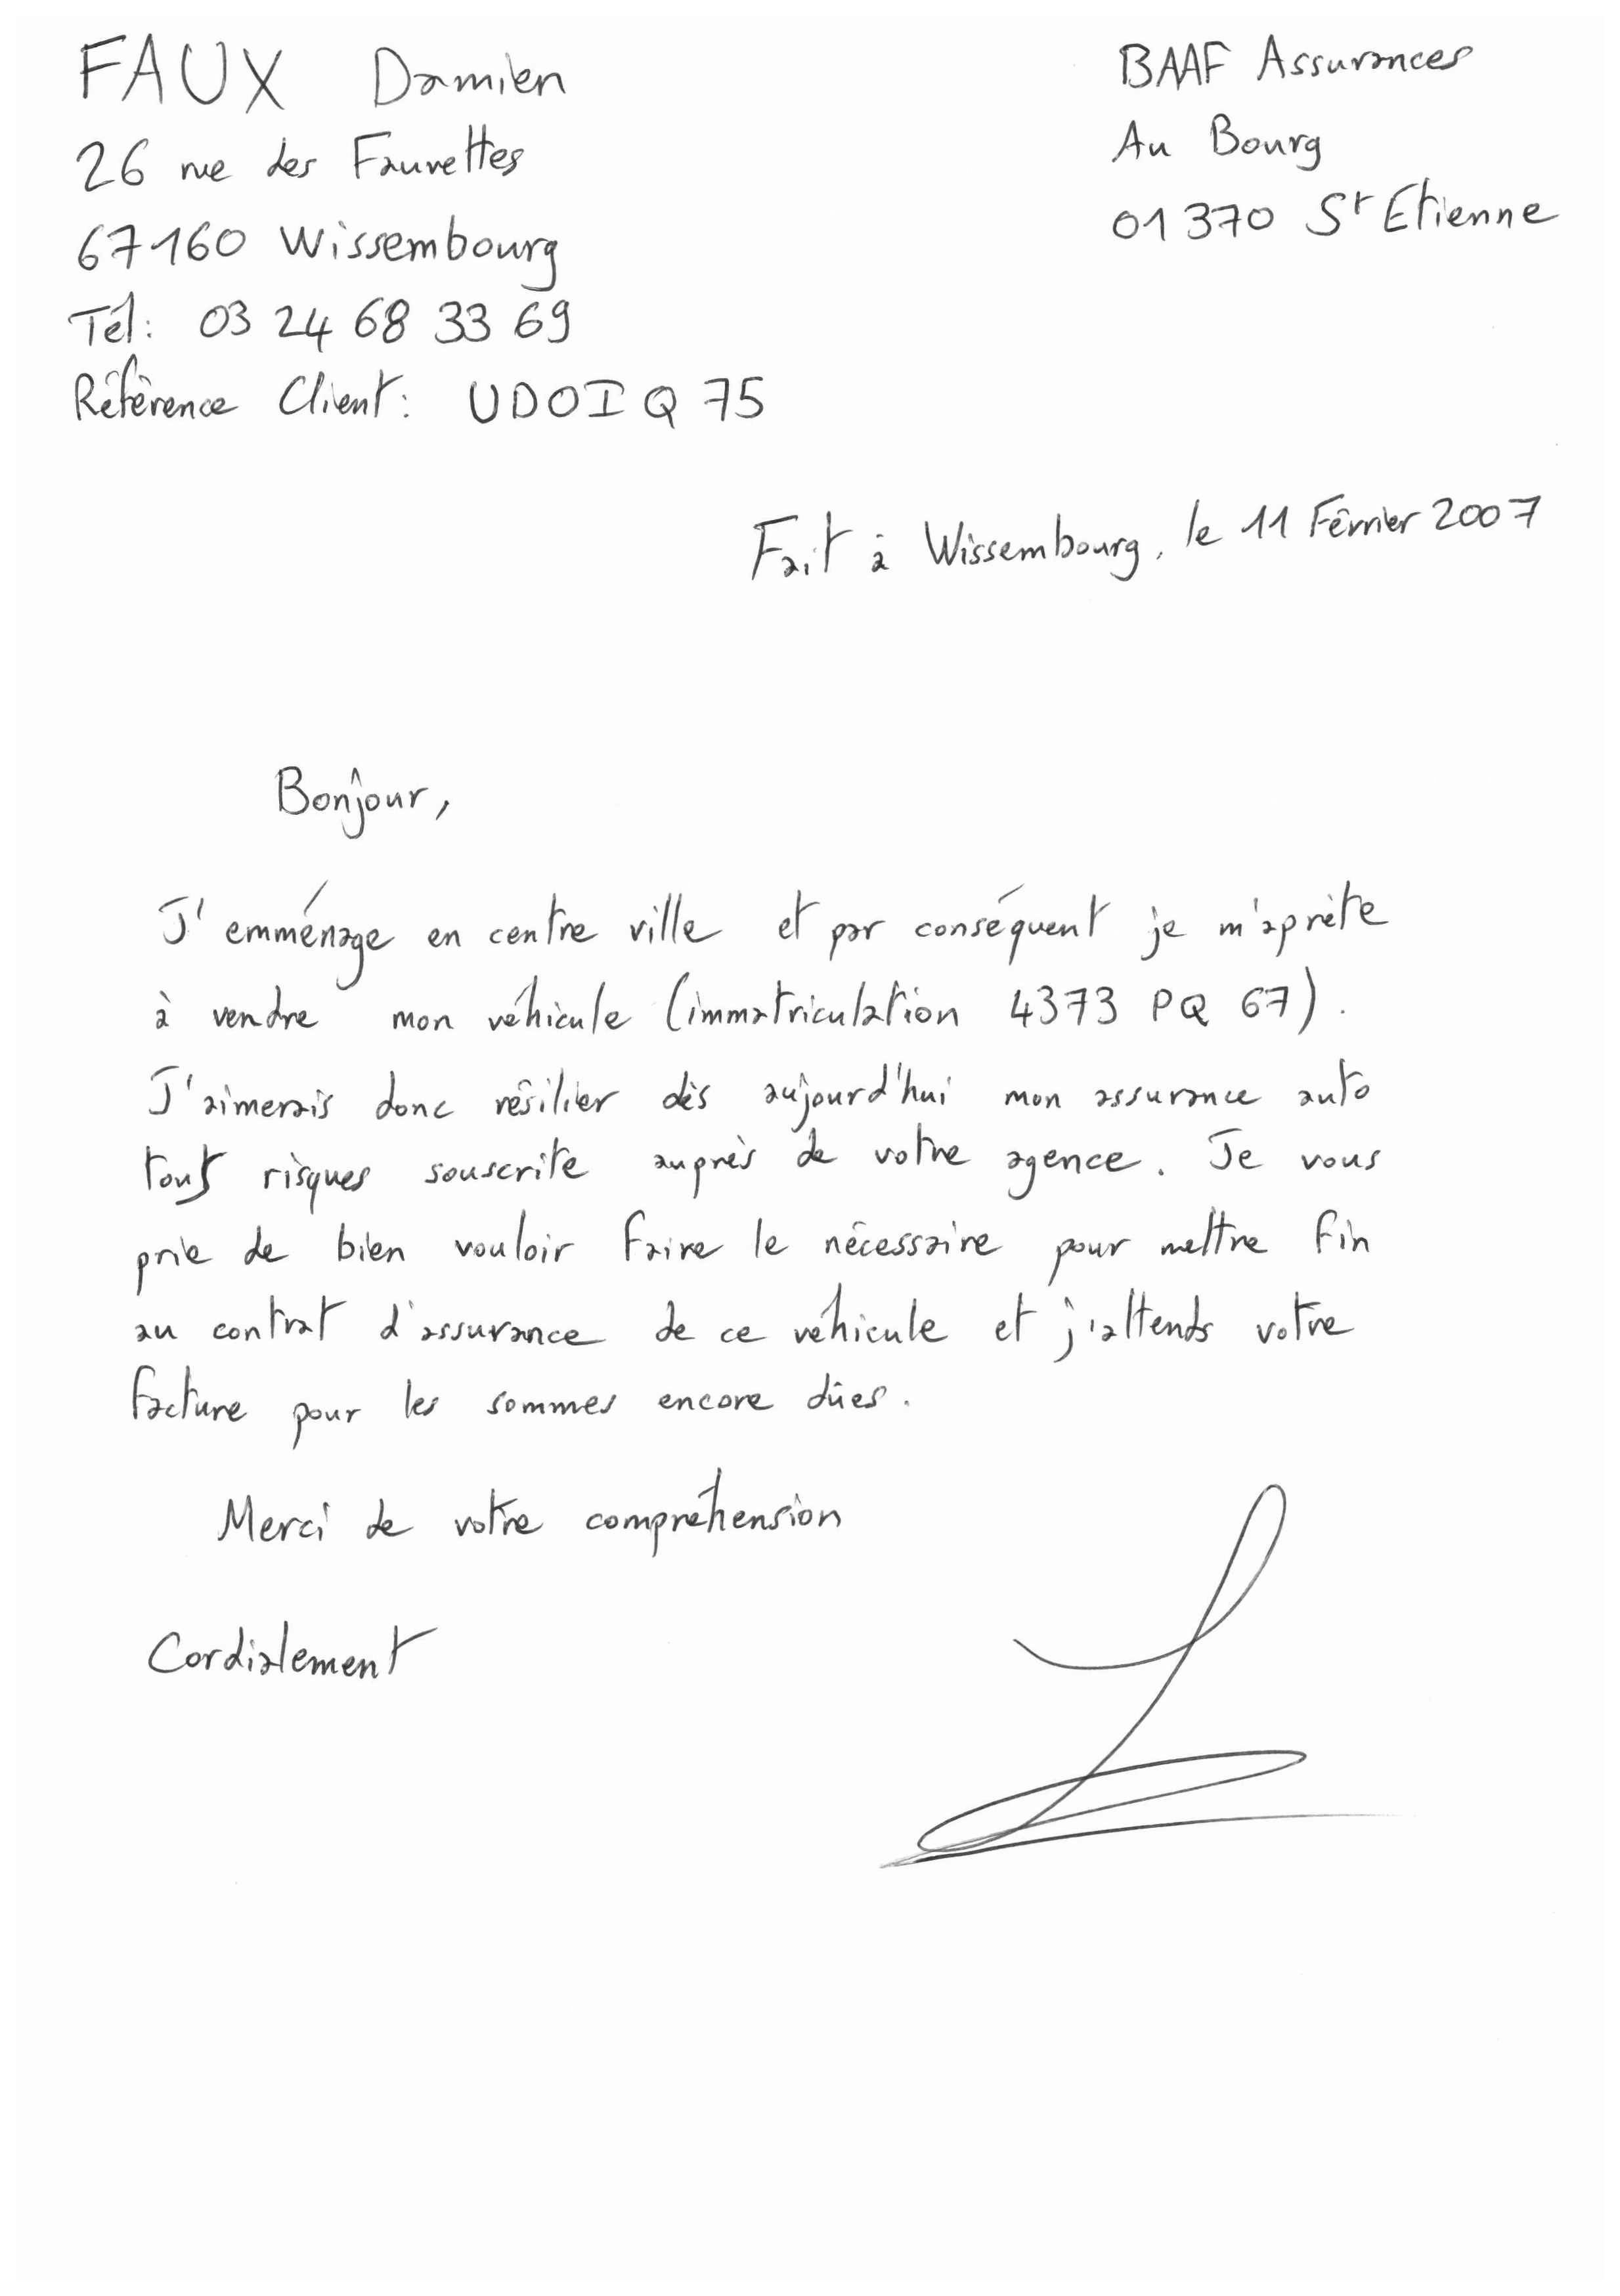 FAUX Damien
26 rue des Fauvettes
67160 Wissembourg
Tél: 03 24 68 33 69
Référence Client: UDOIQ75
BAAF Assurances
Au Bourg
01370 St Etienne
Fait à Wissembourg, le 11 Février 2007
Bonjour,
J'emménage en centre ville et par conséquent je m'aprète
à vendre mon véhicule (immatriculation 4373 PQ 67).
J'aimerais donc résilier dès aujourd'hui mon assurance auto
tous risques souscrite auprès de votre agence. Je vous
prie de bien vouloir faire le nécessaire pour mettre fin
au contrat d'assurance de ce véhicule et j'attends votre
facture pour les sommes encore dûes.
Merci de votre compréhension
Cordialement